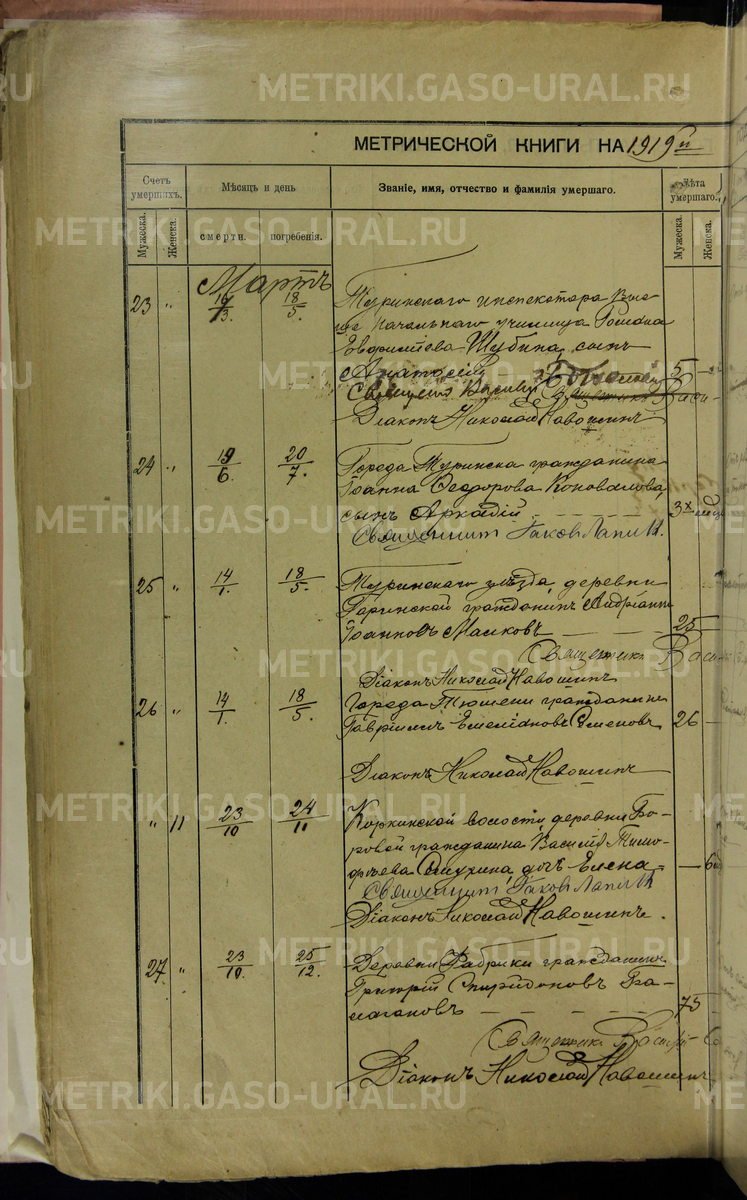 МЕТРИЧЕСКОЙ КНИГИ НА 1919 й
Счетъ умершихъ.
Мѣсяцъ и день
Званіе, имя, отчество и фамилія умершаго.
Лѣта умершаго.
Мужеска.
Женска.
смерти.
погребенія.
Мужеска.
Женска.
Мартъ
23 " 16/3. 18/5. Туринскаго инспектора Выс-
начальнаго училища Романа
Евфимиева Шубина, сынъ
Анатолій 5
Священникъ Василій
Діаконъ Николай Навошинъ
24 " 19/6. 20/7. Города Туринска гражданина
Іоанна Ѳеодорова Коновалова,
сынъ Аркадій 3х
Священникъ Іаковъ Лапинъ.
25 " 14/1. 18/5. Туринскаго уѣзда деревни
гражданинъ Андріанъ
Іоанновъ 25
Священникъ
Діаконъ Николай Навошинъ
26 " 14/1. 18/5. Города Тюмени гражданинъ
Гавриилъ Емеліановъ Семеновъ 26
Діаконъ Николай Навошинъ
" 11 23/10 24/11 Коркинской волости деревни Бо-
ровой гражданина Василія Тимо-
фѣева дочь Елена
Священникъ Іаковъ Лапинъ
Діаконъ Николай Навошинъ.
27 " 23/10. 25/12. Деревни Фабрики гражданинъ
Григорій Спиридоновъ Ба-
лагановъ 75
Священникъ
Діаконъ Николай Навошинъ
METRIKI.GASO-URAL.RU